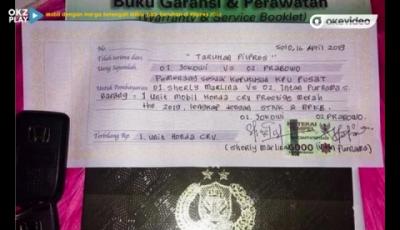 OKZ PLAY
Mobil dengan Harga Setengah Miliar
okevideo
Buku Garansi & Perawatan
Service Booklet)
Solo, 16 April 2019
Telah terima dari "TARUHAN PILPRES"
Uang Sejumlah 01. JOKOWI VS 02 PRABOWO
Pemenang sesuai keputusan KPU PUSAT
Untuk Pembayaran 01. Sherly Marlina VS 02. Intan Purnama S.
Barang = 1 unit mobil Honda CRV Prestige Merah
thn 2019, lengkap dengan STNK & BPKB
01. JOKOWI 02 PRABOWO
Terbilang Rp 1 unit Honda CRV
6000
(Sherly Marlina) (Intan Purnama)